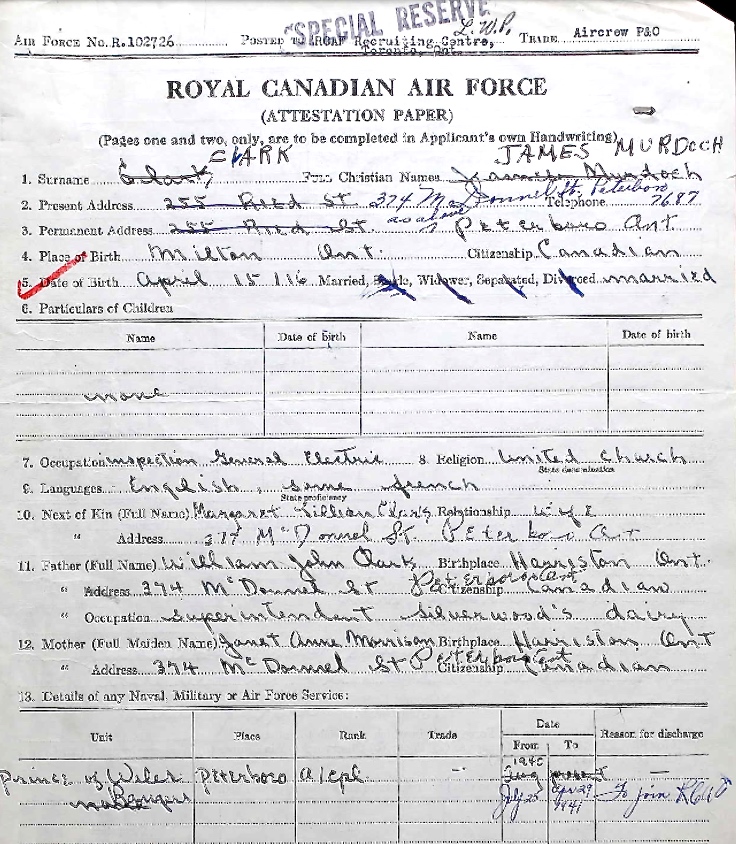 "SPECIAL RESERVE
L.W.P.
AIR FORCE No. R.102726 POSTED TO RCAF Recruiting Centre, TRADE Aircrew P&O
Toronto, Ont.
ROYAL CANADIAN AIR FORCE
(ATTESTATION PAPER)
(Pages one and two, only, are to be completed in Applicant's own Handwriting)
CLARK JAMES MURDOCH
1. Surname Clark Full Christian Names James Murdoch
2. Present Address 255 Reid St 374 McDonnel St. Peterboro Telephone 7687
3. Permanent Address 255 Reid St. as above Peterboro Ont.
4. Place of Birth Milton Ont. Citizenship Canadian
5. Date of Birth April 15 / 16 Married, Single, Widower, Separated, Divorced married
6. Particulars of Children
Name Date of birth Name Date of birth
none
7. Occupation inspection General Electric 8. Religion United Church
State denomination
9. Languages English, some french
State proficiency
10. Next of Kin (Full Name) Margaret Lillian Clark Relationship wife
" Address 377 McDonnel St. Peterboro Ont
11. Father (Full Name) William John Clark Birthplace Harriston Ont.
" Address 374 McDonnel St Peterboro Ont Citizenship Canadian
" Occupation Superintendent Silverwood's dairy
12. Mother (Full Maiden Name) Janet Anne Morrison Birthplace Harriston Ont
" Address 374 McDonnel St Peterboro Ont Citizenship Canadian
13. Details of any Naval, Military or Air Force Service:
Unit Place Rank Trade Date Reason for discharge
From To
Prince of Wales Peterboro A/Cpl. - 1940 Aug present —
Rangers July 25 Apr 29 1941 To join RCAF